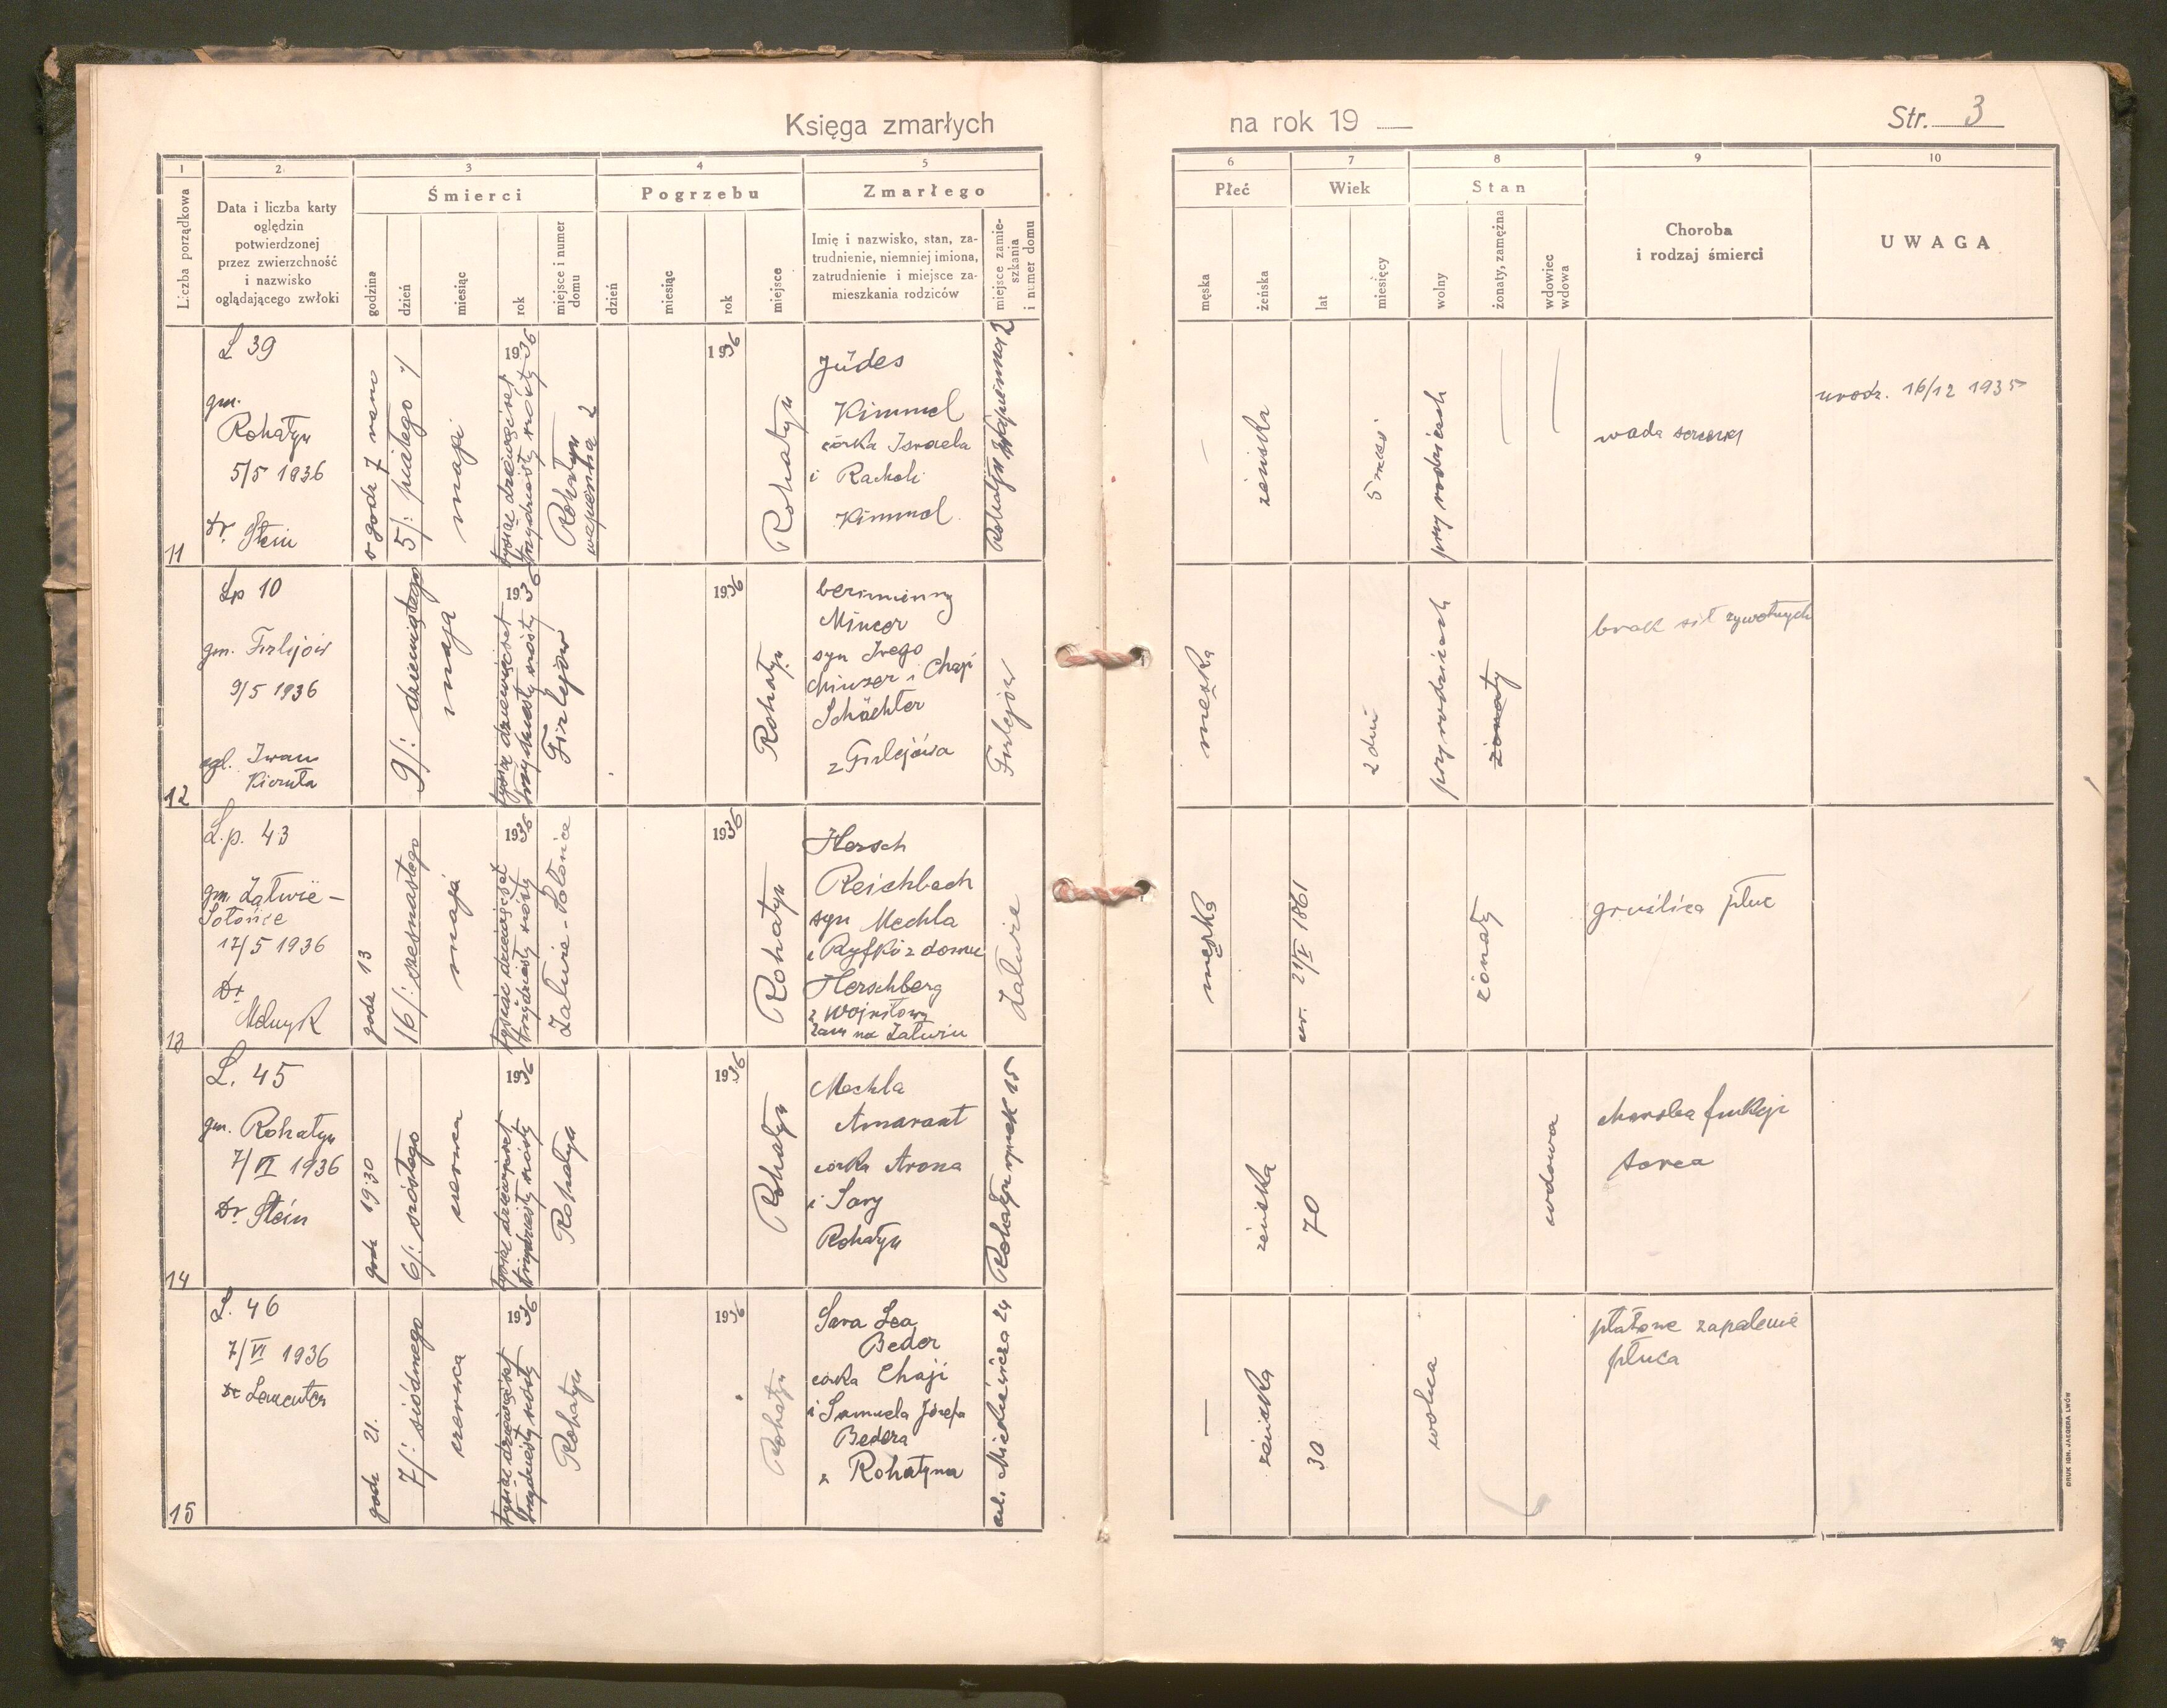 Księga zmarłych
na rok 19 —
Str. 3
1
2
3
4
5
6
7
8
9
10
Liczba porządkowa
Data i liczba karty
oględzin
potwierdzonej
przez zwierzchność
i nazwisko
oglądającego zwłoki
Śmierci
godzina
dzień
miesiąc
rok
miejsce i numer
domu
Pogrzebu
dzień
miesiąc
rok
miejsce
Zmarłego
Imię i nazwisko, stan, za-
trudnienie, niemniej imiona,
zatrudnienie i miejsce za-
mieszkania rodziców
miejsce zamie-
szkania
i numer domu
Płeć
męska
żeńska
Wiek
lat
miesięcy
Stan
wolny
żonaty, zamężna
wdowiec
wdowa
Choroba
i rodzaj śmierci
UWAGA
11
L 39
gm.
Rohatyn
5/5 1936
Dr. Stein
o godz 7 rano
5/: piątego :/
maja
1936
tysiąc dziewięćset
trzydzieści szósty
Rohatyn
wapienna 2
1936
Rohatyn
Jüdes
Kimmel
córka Israela
i Racheli
Kimmel
Rohatyn Wapienna 2
—
żeńska
5 mies
przy rodzicach
wada serca
urodz. 16/12 1935
12
Lp 10
gm. Firlejów
9/5 1936
ogl. Iwan
9/: dziewiątego
maja
1936
tysiąc dziewięćset
trzydziesty szósty
Firlejów
1936
Rohatyn
bezimienny
Mincer
syn
i Chaji
Schächter
z Firlejowa
Firlejów
męska
2 dni
przy rodzicach
żonaty
brak sił żywotnych
13
L.p. 43
gm. Załuże –
17/5 1936
Dr
Melnyk
godz 13
16/: szesnastego
maja
1936
tysiąc dziewięćset
trzydziesty szósty
1936
Rohatyn
Hersch
Reichbach
syn Mechla
i Ryfki z domu
Herschberg
męska
ur. 21/V 1861
żonaty
gruźlica płuc
14
L. 45
gm. Rohatyn
7/VI 1936
Dr Stein
godz 19:30
6/: szóstego
czerwca
1936
tysiąc dziewięćset
trzydziesty szósty
Rohatyn
1936
Rohatyn
Mechla
Amarant
córka Arona
i Sary
Rohatyn
Rohatyn rynek 15
żeńska
70
wdowa
serca
15
L. 46
7/VI 1936
godz 21.
7/: siódmego
czerwca
1936
tysiąc dziewięćset
trzydziesty szósty
Rohatyn
1936
Rohatyn
Sara Lea
Beder
córka Chaji
i Samuela Józefa
Bedera
z Rohatyna
ul. Mickiewicza 24
—
żeńska
30
wolna
płatowe zapalenie
płuca
DRUK IGN. JAEGERA LWÓW